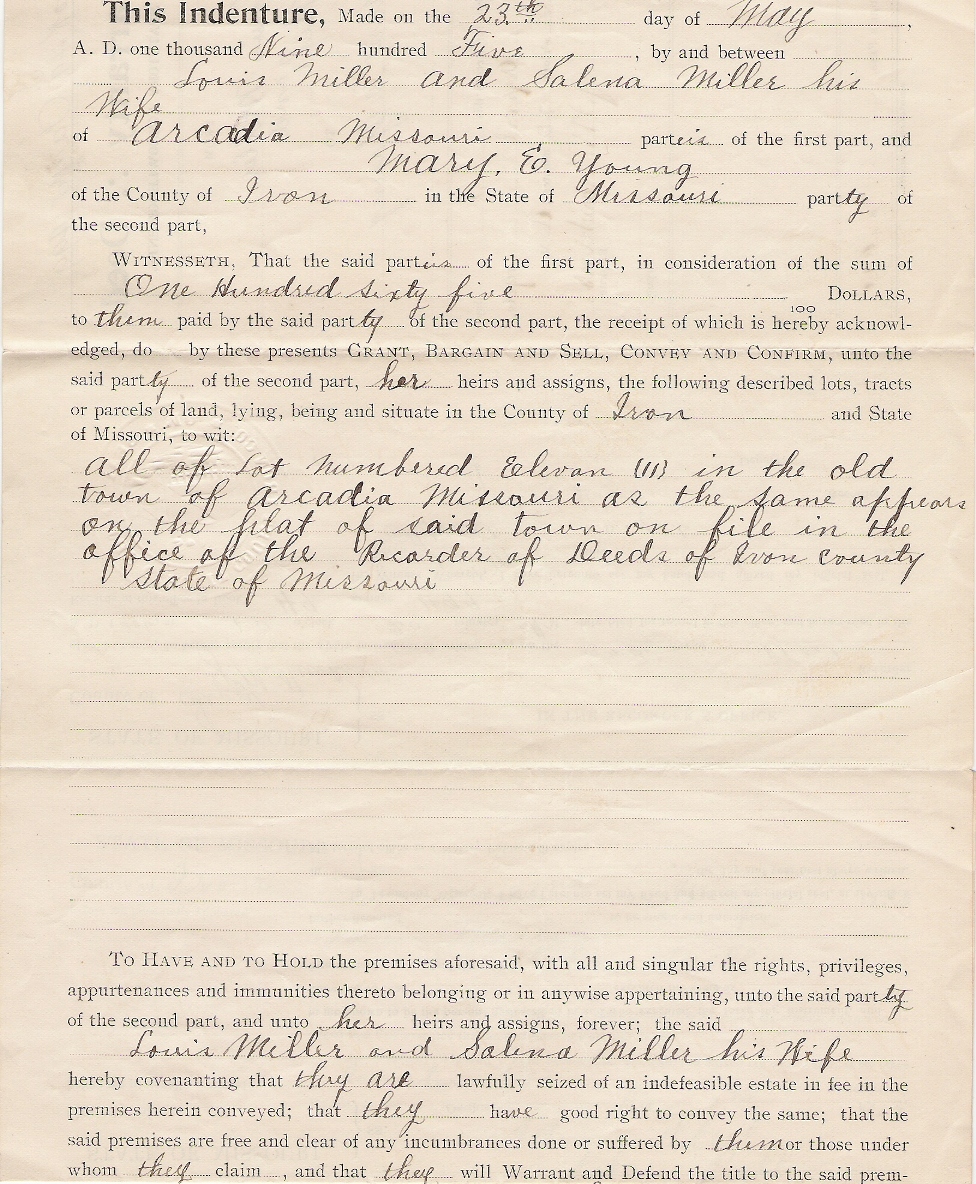 This Indenture, Made on the 23th day of May,
A. D. one thousand Nine hundred Five, by and between
Louis Miller and Salena Miller his
Wife
of Arcadia Missouri parteis of the first part, and
Mary. E. Young
of the County of Iron in the State of Missouri party of
the second part,
WITNESSETH, That the said parteis of the first part, in consideration of the sum of
One Hundred sixty five 100 DOLLARS,
to them paid by the said party of the second part, the receipt of which is hereby acknowl-
edged, do by these presents GRANT, BARGAIN AND SELL, CONVEY AND CONFIRM, unto the
said party of the second part, her heirs and assigns, the following described lots, tracts
or parcels of land, lying, being and situate in the County of Iron and State
of Missouri, to wit:
all of Lot numbered Elevan (11) in the old
town of Arcadia Missouri as the same appears
on the plat of said town on file in the
office of the Recorder of Deeds of Iron county
state of Missouri
TO HAVE AND TO HOLD the premises aforesaid, with all and singular the rights, privileges,
appurtenances and immunities thereto belonging or in anywise appertaining, unto the said party
of the second part, and unto her heirs and assigns, forever; the said
Louis Miller and Salena Miller his Wife
hereby covenanting that they are lawfully seized of an indefeasible estate in fee in the
premises herein conveyed; that they have good right to convey the same; that the
said premises are free and clear of any incumbrances done or suffered by them or those under
whom they claim, and that they will Warrant and Defend the title to the said prem-